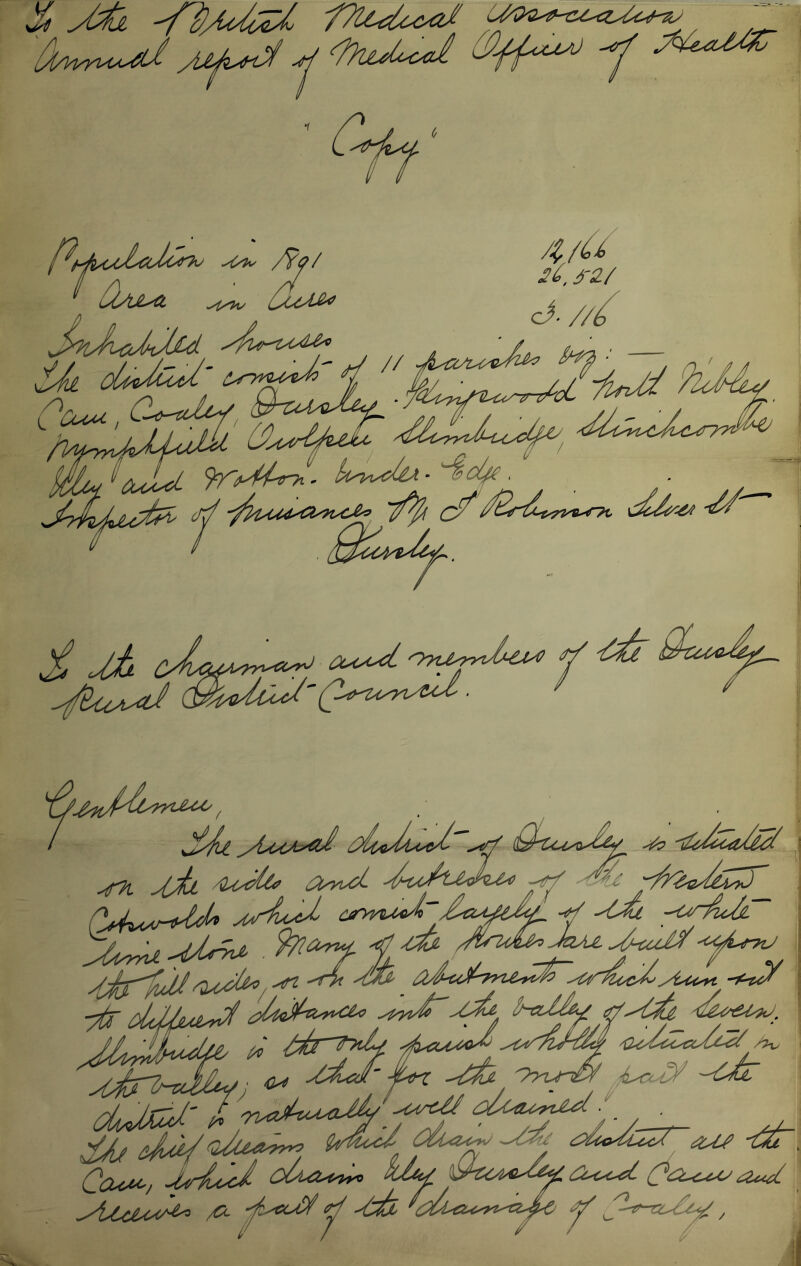 To the British Medical Association
Annual report of Medical Officer of Health
"Copy"
Population in 1891 12,166
Area in Acres 26,521
Inhabited houses 3.116
The district consists of 11 parishes viz: —
Cam, Coaley, Dursley. Kingswood North Nibley.
Nympsfield Owlpen Slimbridge, Stinchcombe
Uley and Wotton-Under-Edge.
Inspector of Nuisances Mr J Robinson Silver St—
Dursley.
To the chairman and members of the Dursley
Rural District Council.
Gentlemen,
The rural district of Dursley is situated
on the sides and butresses of the Western
Cotswolds which consist largely of the white
lime stone. Many of the houses are built upon
the hill sides, or on the abutments which run out
to different distances into the valley of the Severn.
Slimbridge is the only parish wholly situated in
the valley; so that for the most part the
district is naturally well drained.
The chief streams which drain the district are the
Cam, which drains Uley Dursley and Cam and
receives a part of the drainage of Coaley,